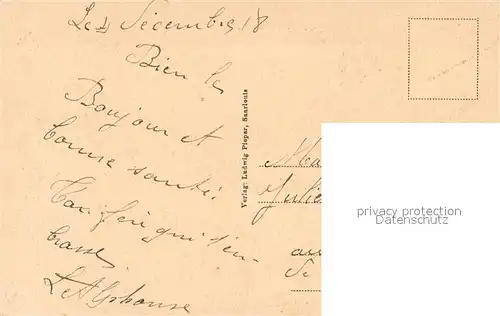 Le 1 Décembre 18
Bien le
Boujour et
bonne santé
qui t'em-
brasse
Alphonse
Verlag: Ludwig Pieper, Saarlouis
Ma
Julie
privacy protection
Datenschutz